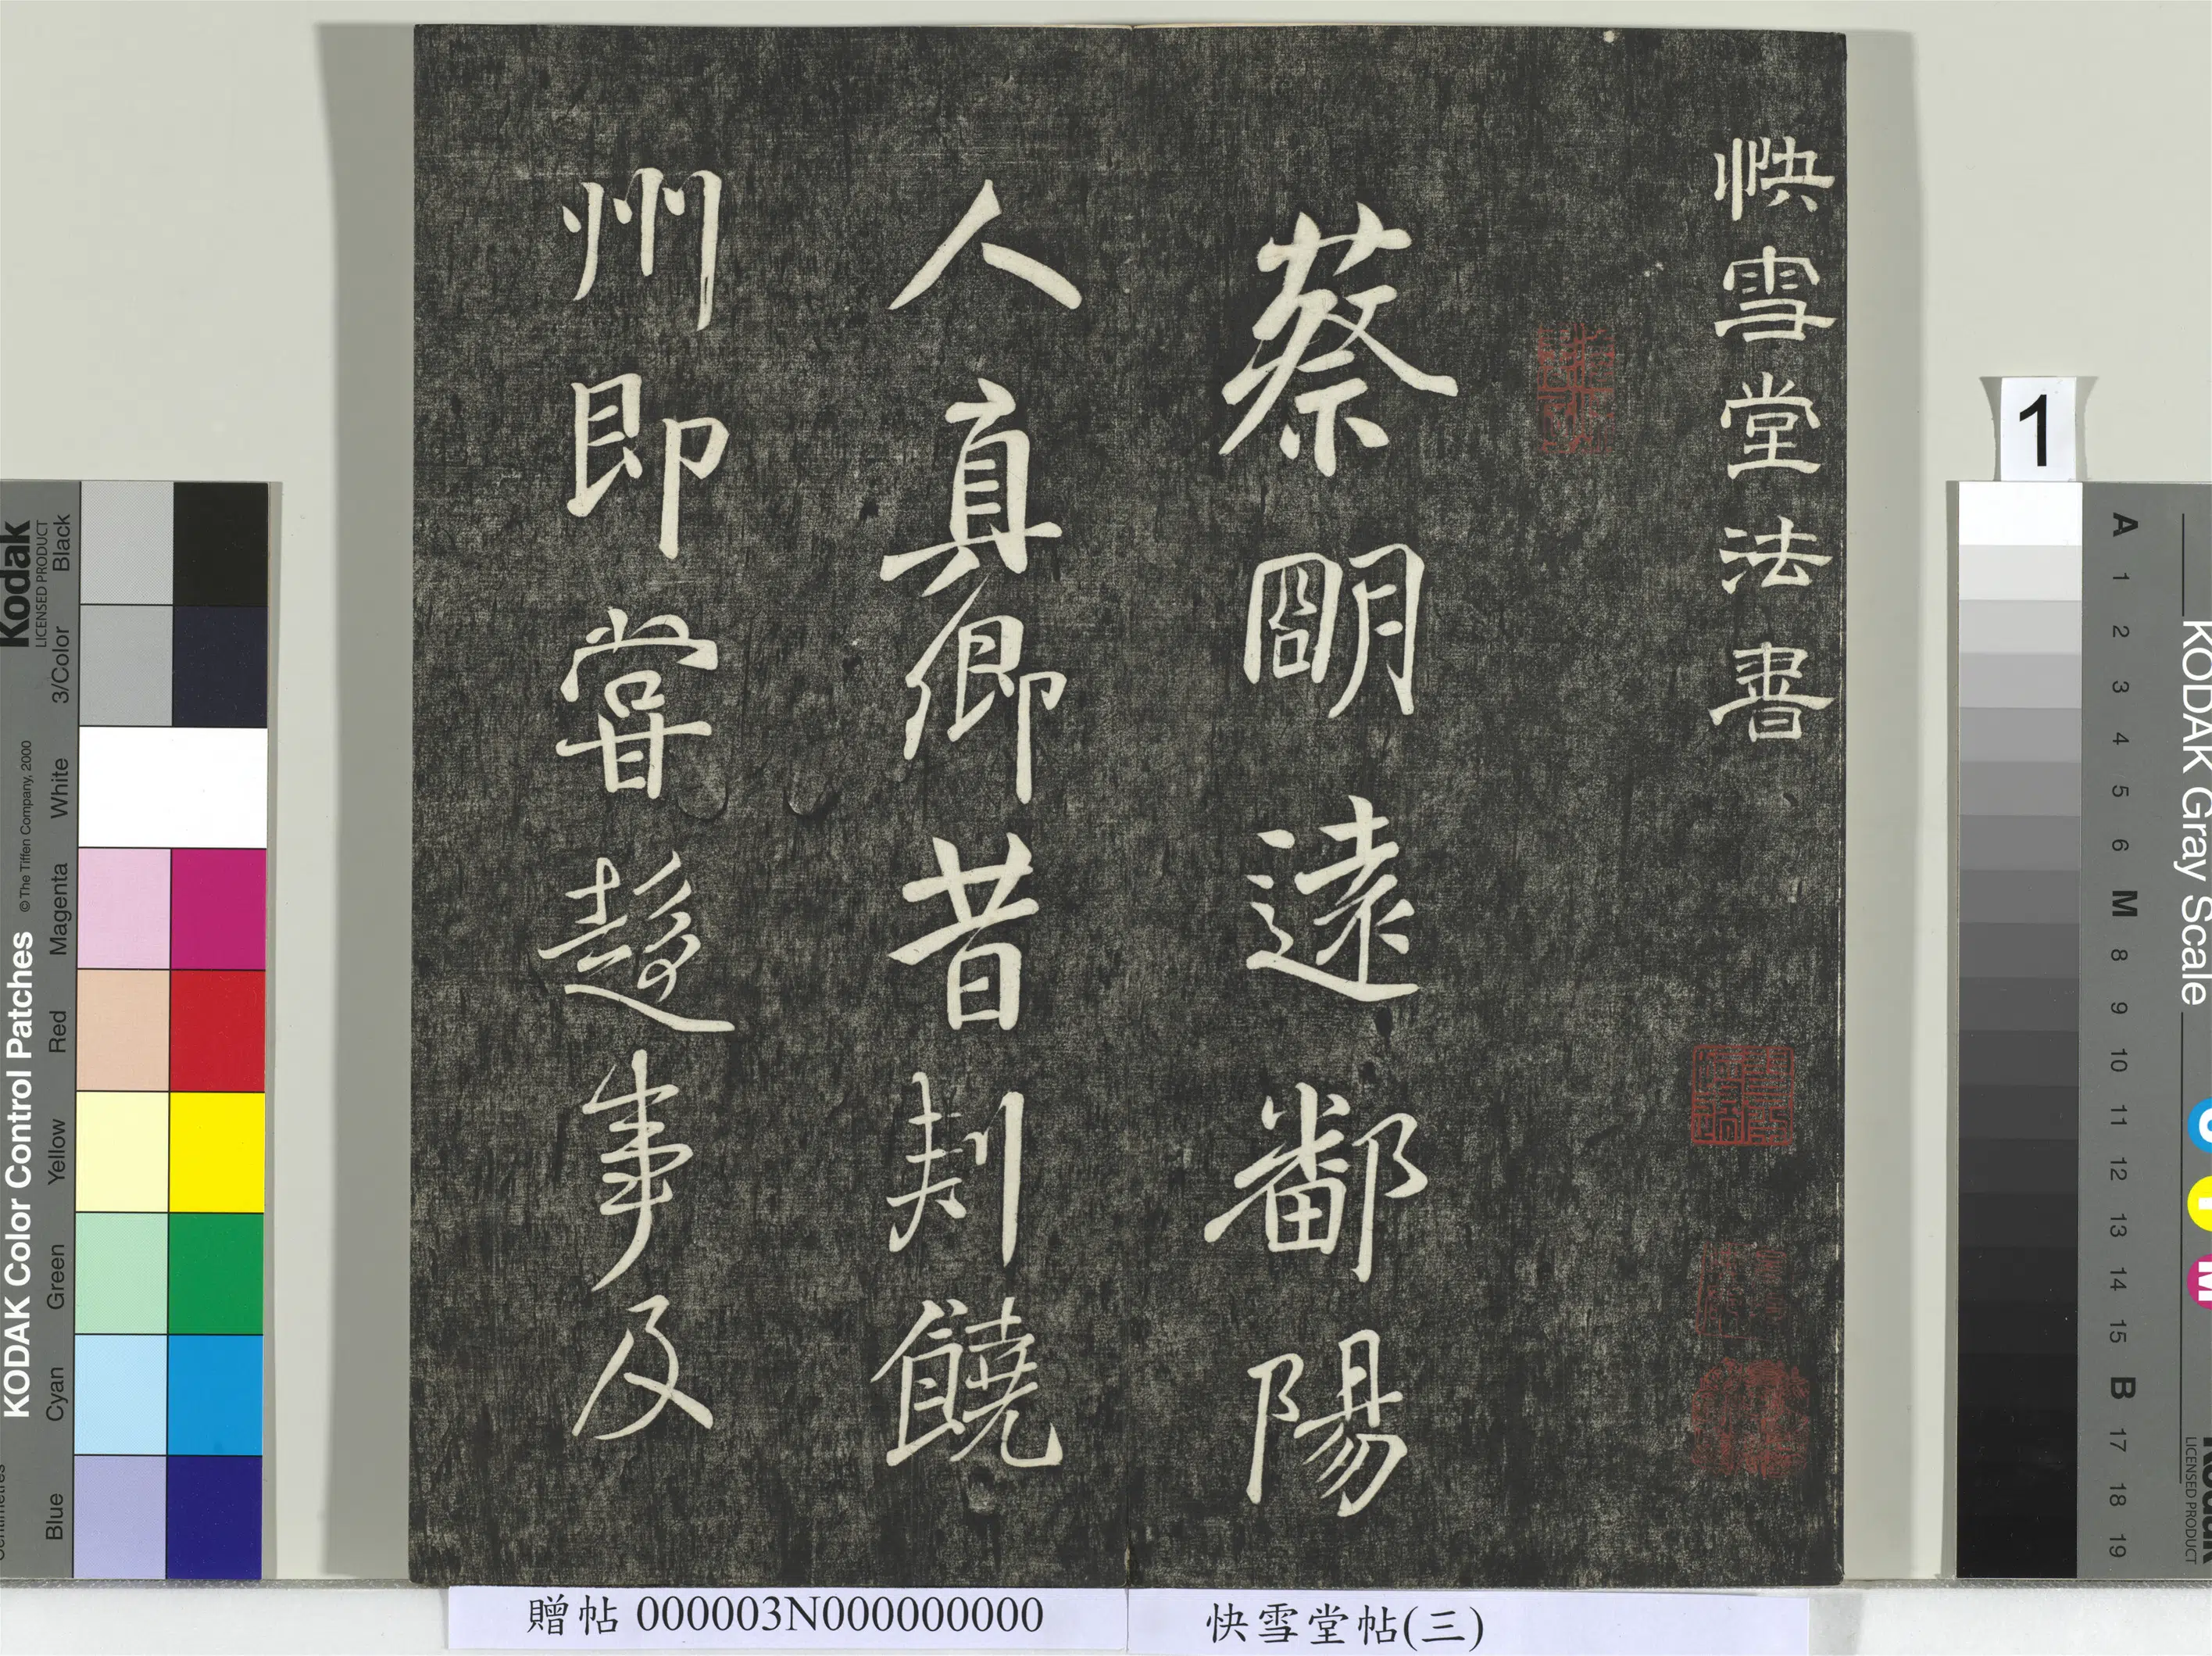 快雪堂法書
蔡明遠鄱陽
人真卿昔刺饒
州即甞趍事及
贈帖 000003N000000000
快雪堂帖(三)
1
Kodak
LICENSED PRODUCT
KODAK Color Control Patches
© The Tiffen Company, 2000
Blue
Cyan
Green
Yellow
Red
Magenta
White
3/Color
Black
KODAK Gray Scale
A
1
2
3
4
5
6
M
8
9
10
11
12
13
14
15
B
17
18
19
C
Y
M
LICENSED PRODUCT